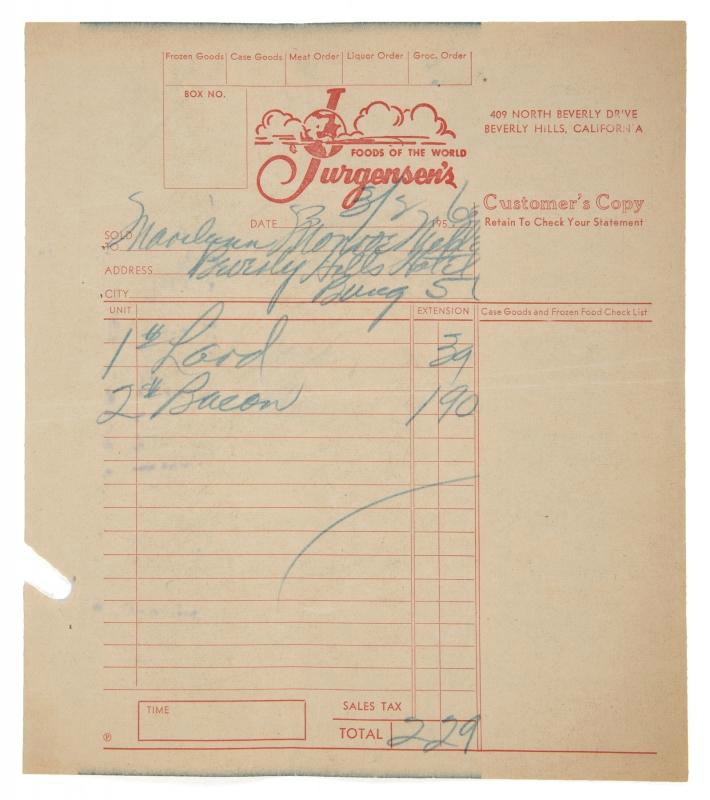 Frozen Goods Case Goods Meat Order Liquor Order Groc. Order
BOX NO.
409 NORTH BEVERLY DRIVE
BEVERLY HILLS, CALIFORNIA
FOODS OF THE WORLD
Jurgensen's
Customer's Copy
Retain To Check Your Statement
DATE 3/2 6 195
SOLD TO Marilynn Monroe
ADDRESS Beverly Hills Hotel
CITY Bung 5
UNIT EXTENSION Case Goods and Frozen Food Check List
1 # Lard 39
2 # Bacon 190
TIME
SALES TAX
TOTAL 229